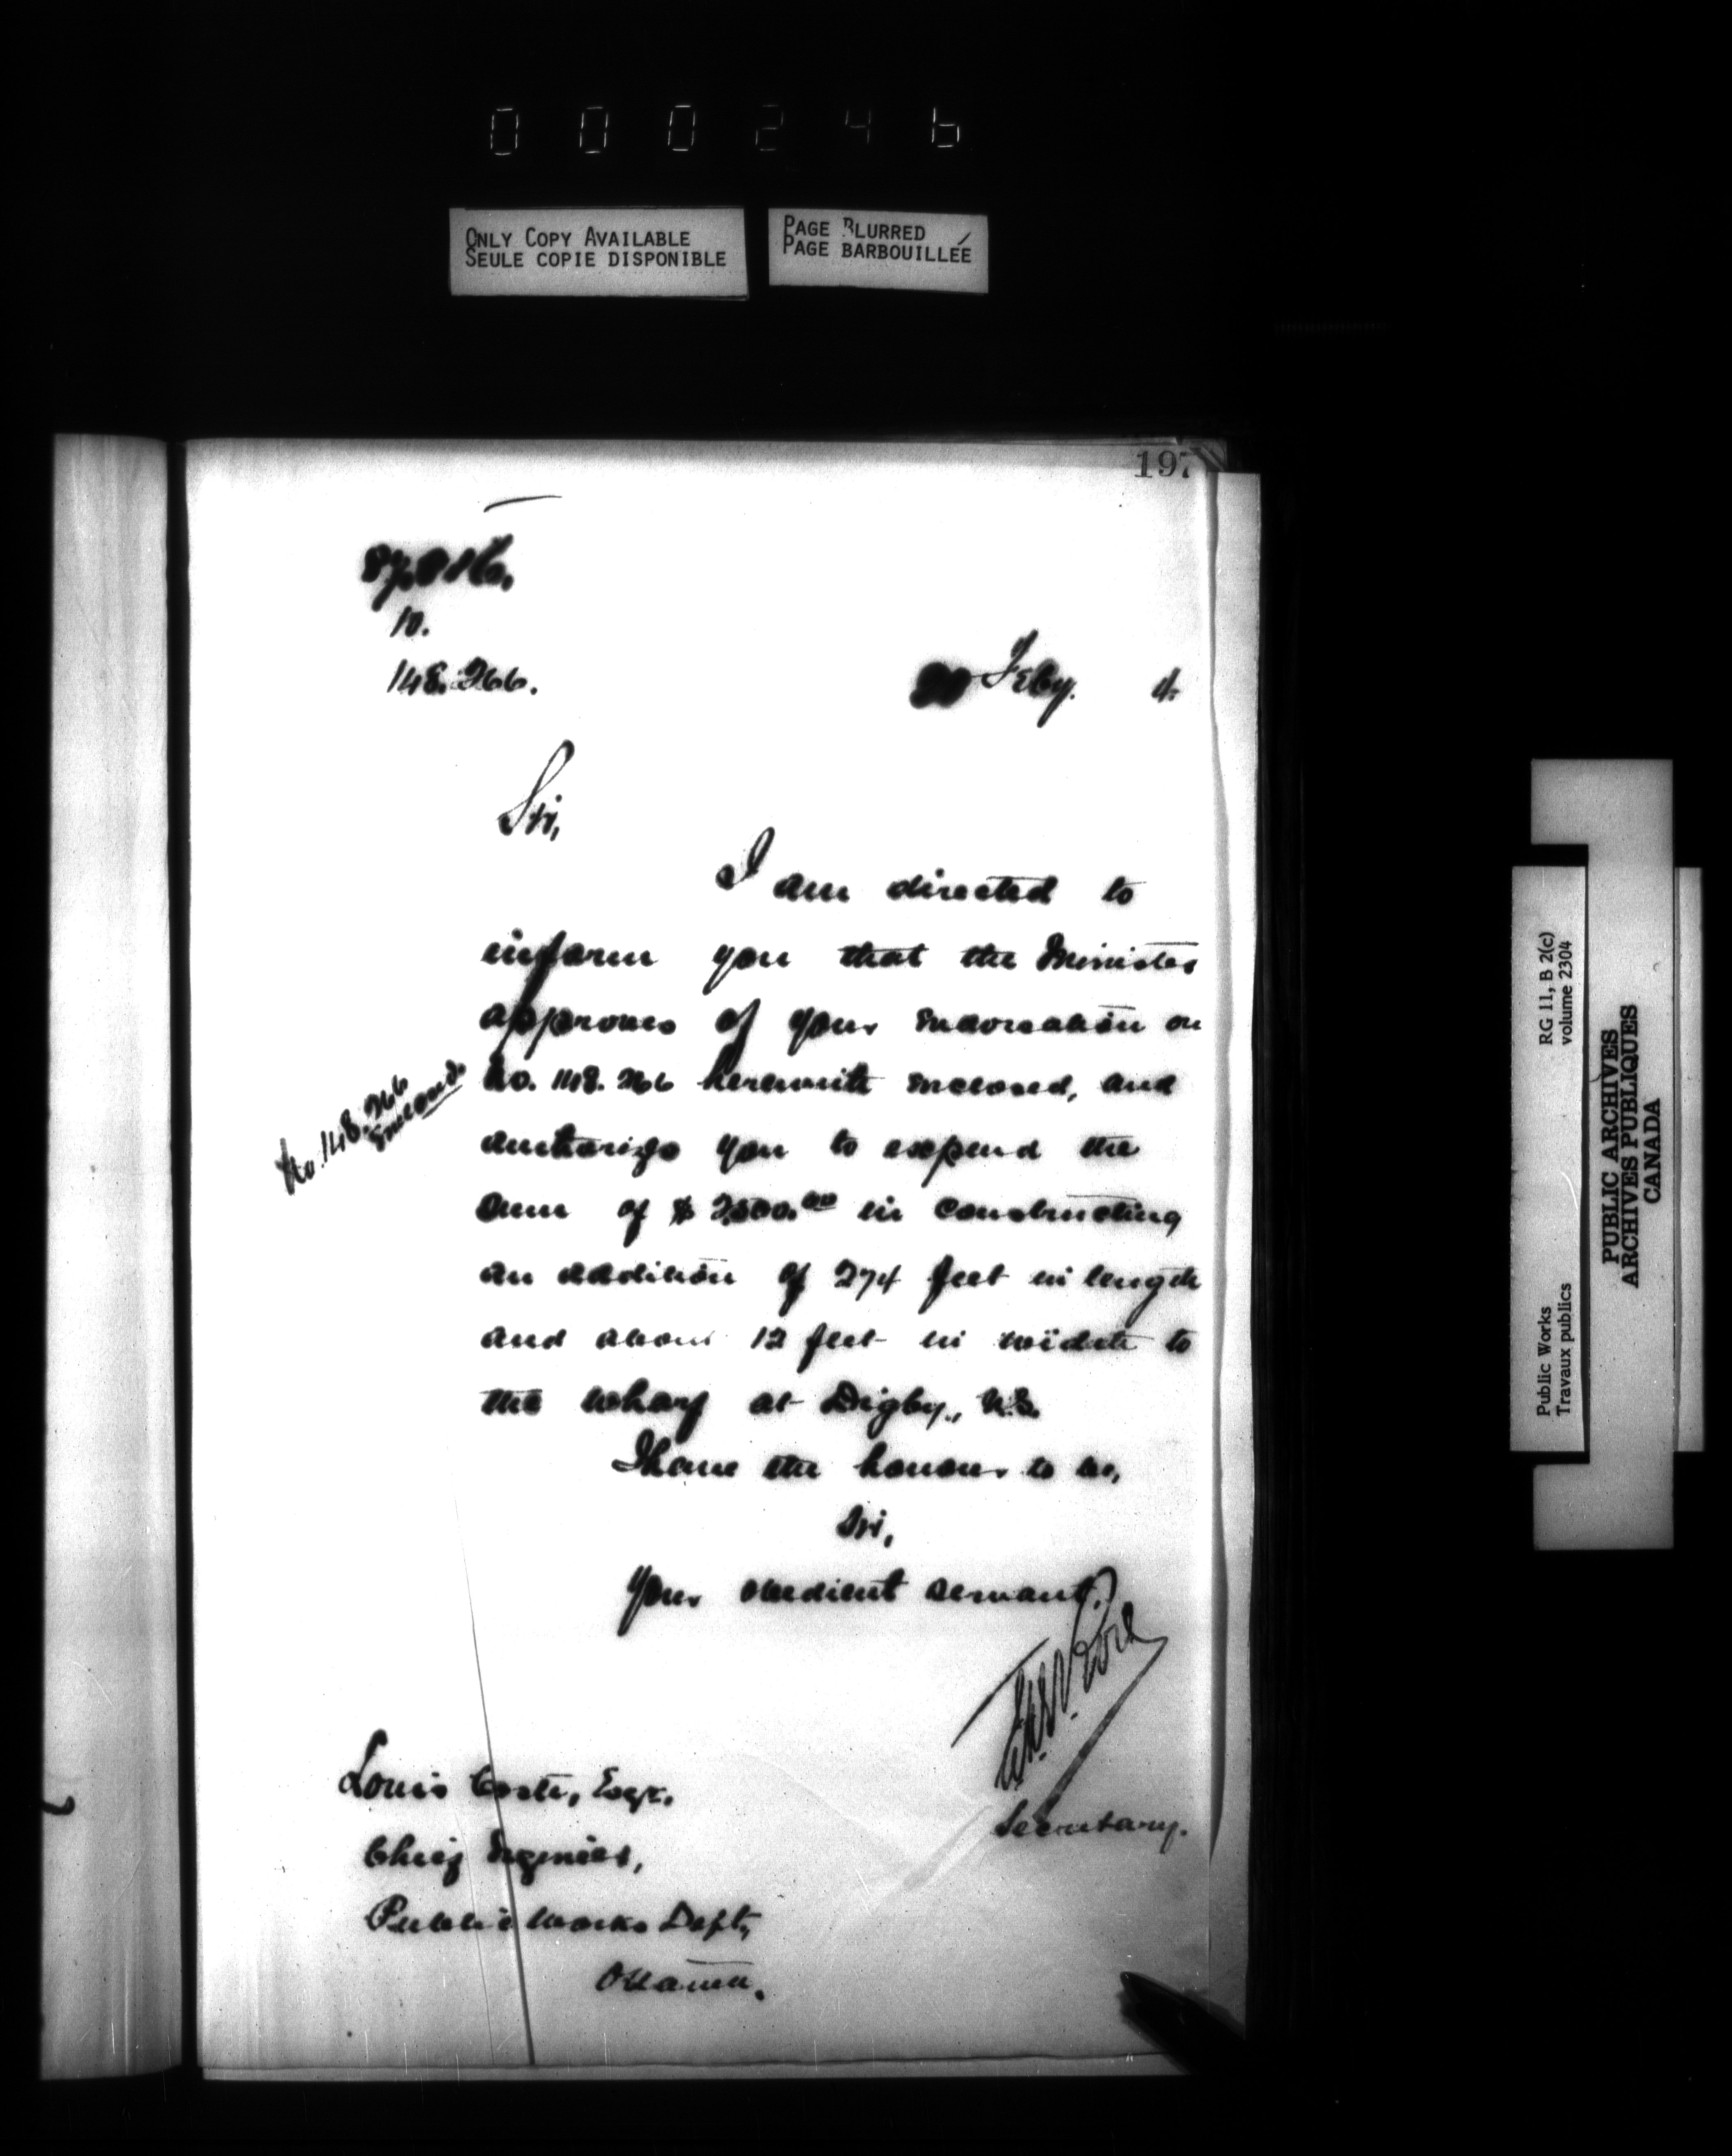 000246
ONLY COPY AVAILABLE
SEULE COPIE DISPONIBLE
PAGE BLURRED
PAGE BARBOUILLÉE
197
10.
148.266.
Feby. 4.
Sir,
I am directed to
inform you that the Minister
approves of your endorsation on
No. 148.266 herewith enclosed, and
No. 148.266
Enclosed.
authorize you to expend the
sum of $2,500.00 in constructing
an addition of 274 feet in length
and about 12 feet in width to
the wharf at Digby, N.S.
I have the honour to be,
Sir,
Your obedient servant.
Secretary.
Louis Coste, Esqr.
Chief Engineer,
Public Works Dept,
Ottawa.
RG 11, B 2(c)
volume 2304
Public Works
Travaux publics
PUBLIC ARCHIVES
ARCHIVES PUBLIQUES
CANADA